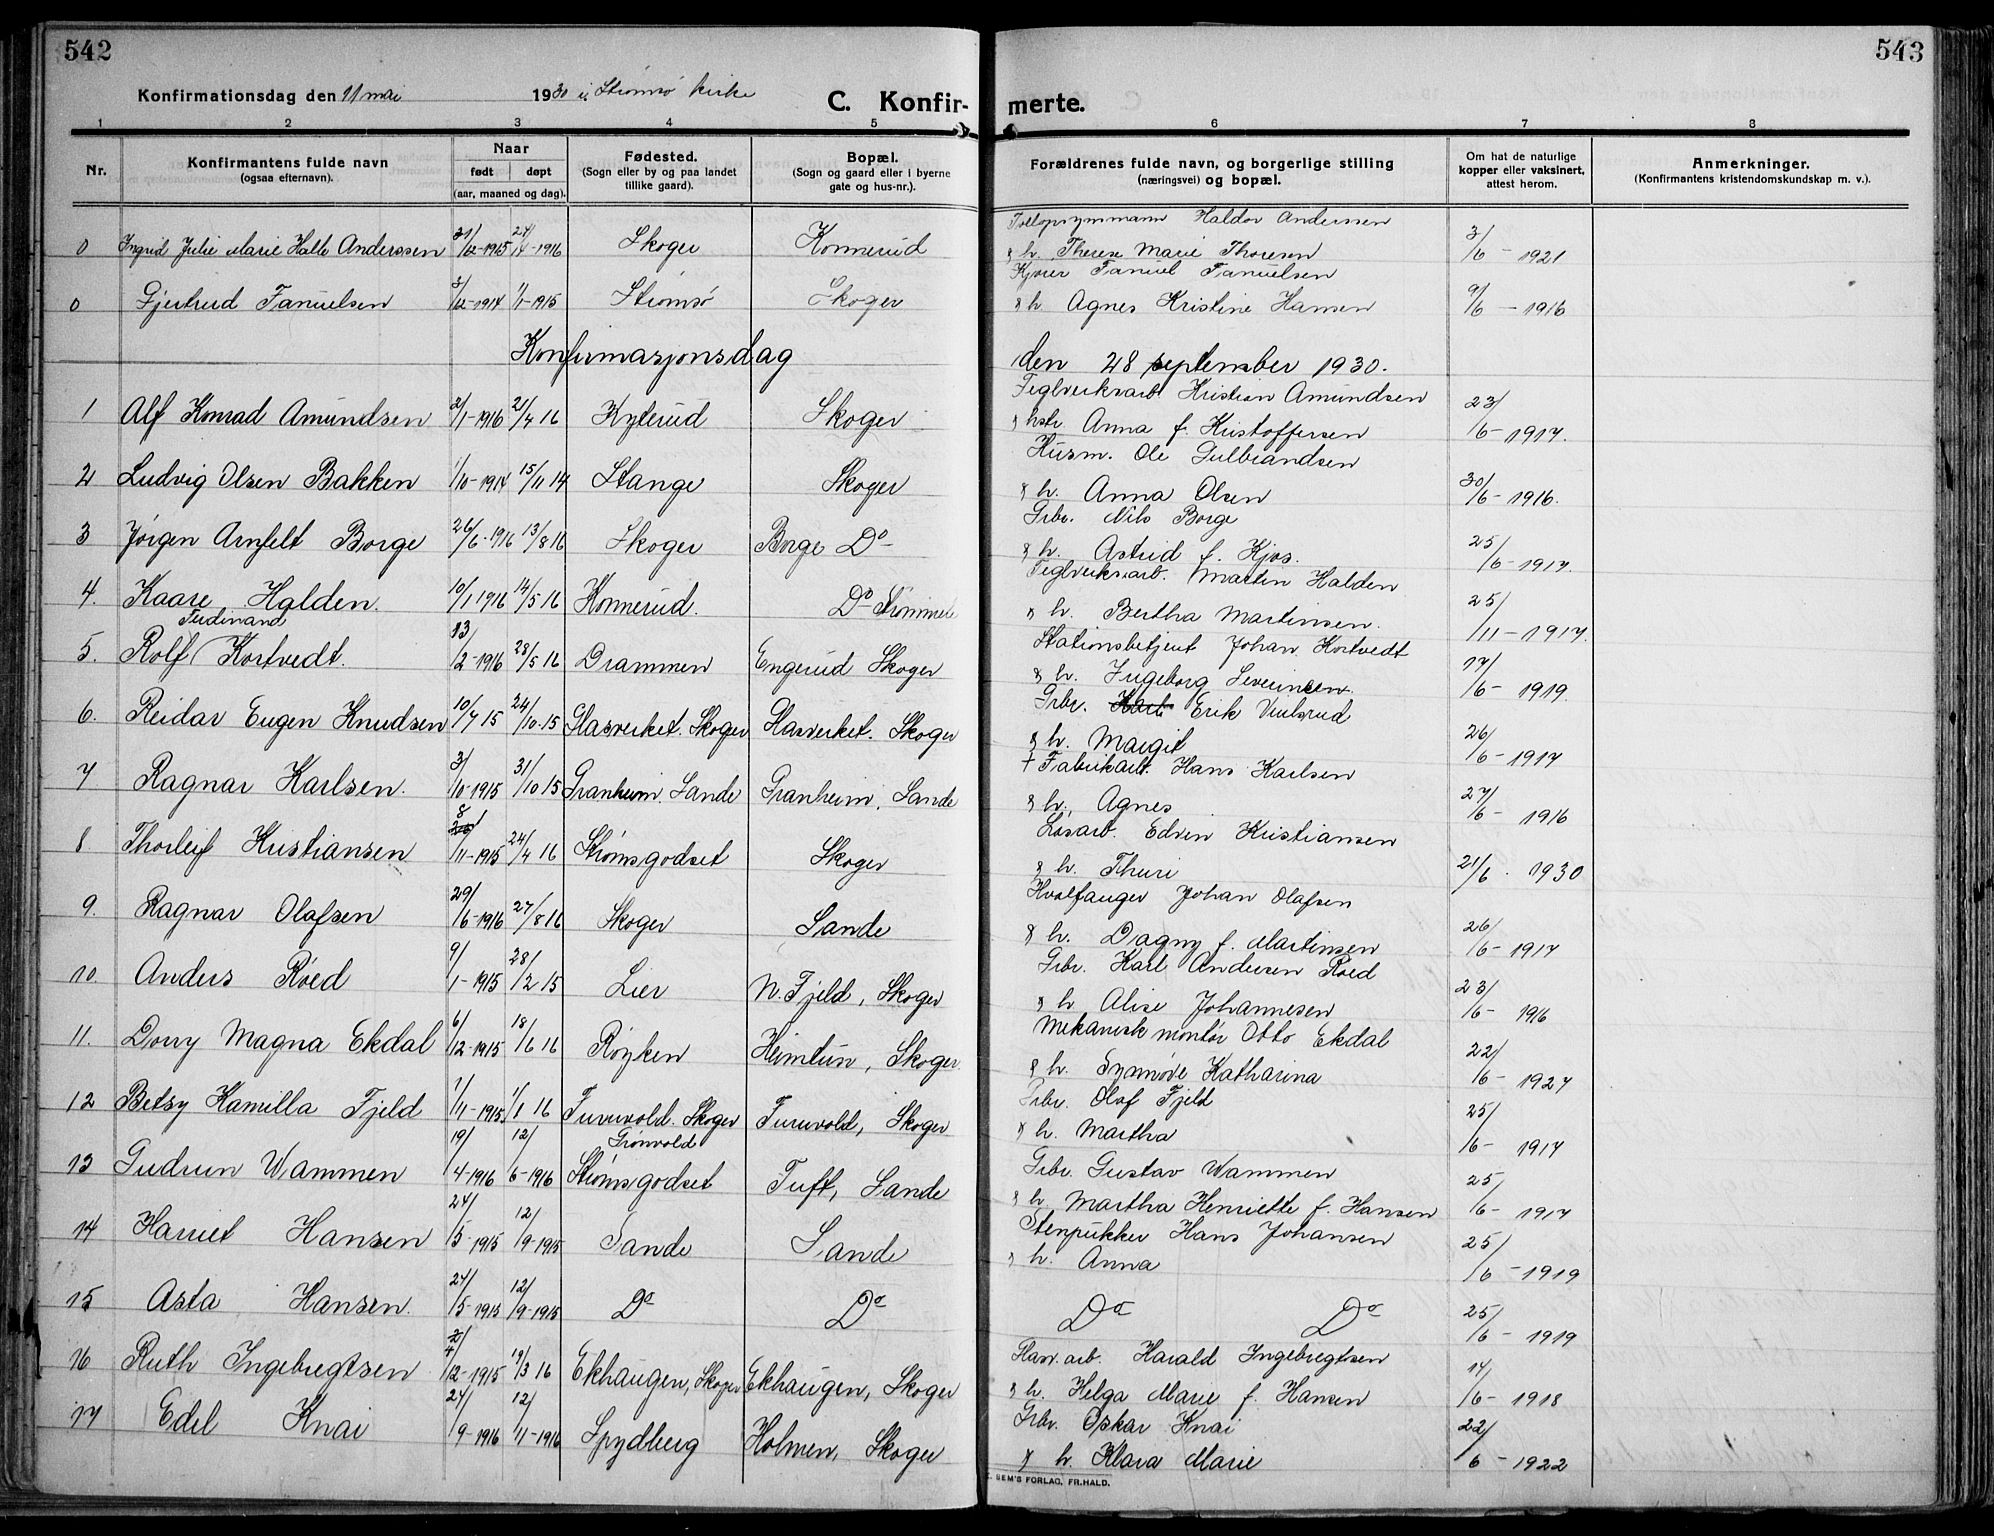 542
543
Konfirmationsdag den 11 mai 1930 i Strømsø kirke
C. Konfir- merte.
1 2 3 4 5 6 7 8
Nr. Konfirmantens fulde navn (ogsaa efternavn). Naar født døpt (aar, maaned og dag). Fødested. (Sogn eller by og paa landet tillike gaard). Bopæl. (Sogn og gaard eller i byerne gate og hus-nr.). Forældrenes fulde navn, og borgerlige stilling (næringsvei) og bopæl. Om hat de naturlige kopper eller vaksinert, attest herom. Anmerkninger. (Konfirmantens kristendomskundskap m. v.).
Haldor Anderssen
0 Ingrid Julie Marie Halle Anderssen 31/12-1915 24/4-1916 Skoger Konnerud & h. Therese Marie Thoresen 3/6-1921
Fanuel Fanuelsen
0 Gjertrud Fanuelsen 3/12-1914 1/1-1915 Strømsø Skoger & h. Agnes Kristine Hansen 9/6-1916
Konfirmasjonsdag den 28 september 1930.
Teglverksarb. Kristian Amundsen
1 Alf Konrad Amundsen 2/1-1916 21/4 16 Kylerud Skoger & hstr. Anna f. Kristoffersen 23/6-1917.
Husm. Ole Gulbrandsen
2 Ludvig Olsen Bakken 1/10-1914 15/11 14 Stange Skoger & h. Anna Olsen 30/6-1916.
Grbr. Nils Borge
3 Jørgen Arnfelt Borge 26/6-1916 13/8 16 Skoger Borge Do & h. Astrid f. Kjos. 25/6-1917.
Teglverksarb. Martin Halden
4. Kaare Halden. 10/1 1916 14/5 16 Konnerud. Do & h. Bertha Martinsen. 25/11-1917.
Ferdinand Stationsbetjent Johan Kortvedt
5. Rolf Kortvedt. 13/2-1916 28/5 16 Drammen Engerud Skoger & h. Ingeborg Severinsen. 17/6-1919.
Grbr. Karl Erik
6. Reidar Eugen Knudsen 10/7 15 24/10-15 Glasverket. Skoger Glasverket. Skoger & h. Margit 26/6-1917
+ Fabrikarb. Hans Karlsen
7 Ragnar Karlsen. 3/10-1915 31/10 15 Granheim. Sande Granheim, Sande & h. Agnes 27/6-1916
Løsarb. Edvin Kristiansen
8 Thorleif Kristiansen 8/11-1915 24/4 16 Strømsgodset Skoger & h. Thuri 21/6. 1930
Hvalfanger Johan Olafsen
9. Ragnar Olafsen 29/6-1916 27/8 16 Skoger Sande & h. Dagny f. Martinsen 26/6-1917
Grbr. Karl Andersen Røed
10. Anders Røed 9/1-1915 28/2 15 Lier N. Fjeld, Skoger & h Alise Johannesen 23/6-1916
Mekanisk montør Otto Ekdal
11. Dorry Magna Ekdal 6/12-1915 18/6 16 Røyken Heimtun, Skoger & h. Synnøve Katharina 22/6-1927
Grbr. Olaf Fjeld
12 Betsy Kamilla Fjeld 1/11-1915 1/1 16 Furuvold. Skoger Furuvold, Skoger & h. Martha 25/6-1917
Grønvold Grbr. Gustav Wammen
13 Gudrun Wammen 19/4-1916 12/6-1916 Strømsgodset Tuft, Sande & h. Martha Henriette f. Hansen 25/6-1917
Stenpukker Hans Johansen
14 Harriet Hansen 24/5-1915 12/9-1915 Sande Sande & h. Anna 25/6-1919
15 Asta Hansen. 24/5-1915 12/9-1915 Do Do Do Do 25/6-1919
Glasv. arb. Harald Ingebregtsen
16 Ruth Ingebregtsen 4/12-1915 19/3 16 Ekhaugen, Skoger Ekhaugen, Skoger & h. Helga Marie f. Hansen 14/6-1918
Grbr. Oskar Knai
17 Edel Knai 24/9-1916 12/11-1916 Spydberg Holmen, Skoger & h. Klara Marie 22/6-1922
SEM'S FORLAG, FR.HALD.